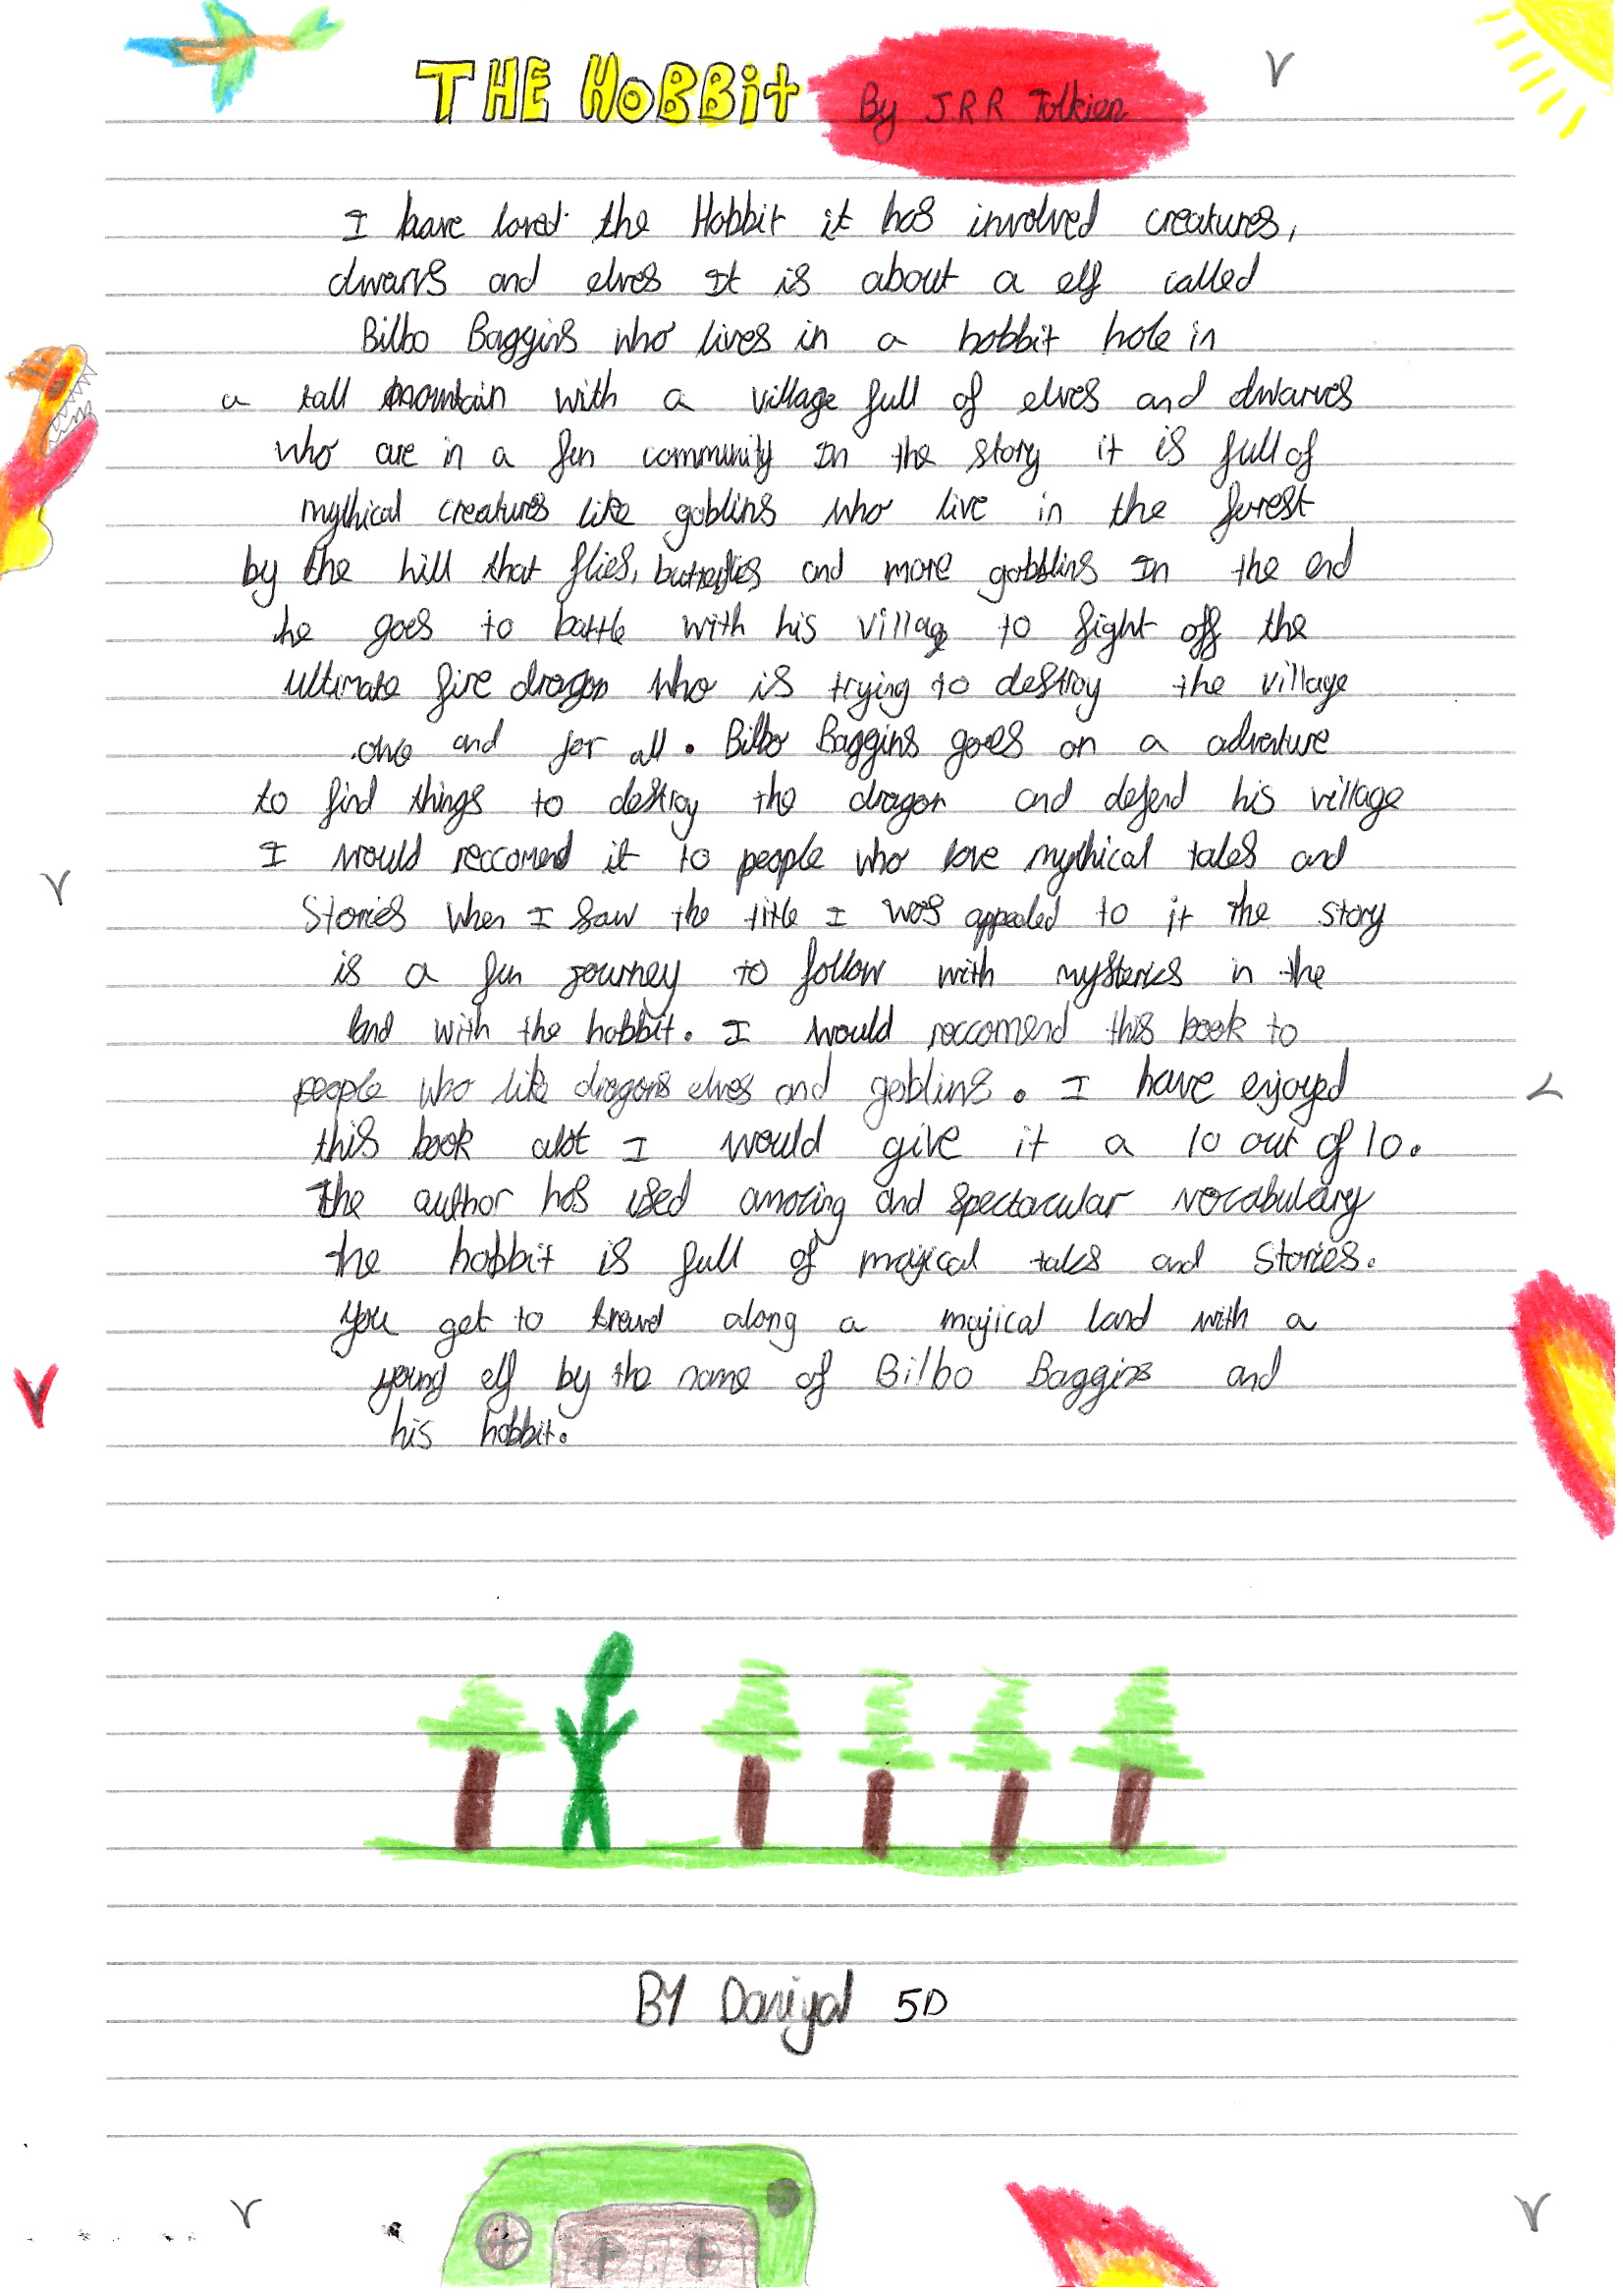 THE HOBBit By J R R Tolkien
I have loved the Hobbit it has involved creatures,
dwarvs and elves It is about a elf called
Bilbo Baggins who lives in a hobbit hole in
a tall mountain with a village full of elves and dwarves
who are in a fun community In the story it is full of
mythical creatures like goblins who live in the forest
by the hill that flies, butterflies and more gobblins In the end
he goes to battle with his village to fight off the
ultimate fire dragon who is trying to destroy the village
and for all. Bilbo Baggins goes on a adventure
to find things to destroy the dragon and defend his village
I would reccomend it to people who love mythical tales and
Stories when I saw the title I was appealed to it the story
is a fun journey to follow with mysteries in the
land with the hobbit. I would reccomend this book to
people who like dragons elves and goblins. I have enjoyed
this book alot I would give it a 10 out of 10.
The author has used amazing and spectacular vocabulary
the hobbit is full of majical tales and Stories.
You get to travel along a majical land with a
young elf by the name of Bilbo Baggins and
his hobbit.
BY Daniyal 5D